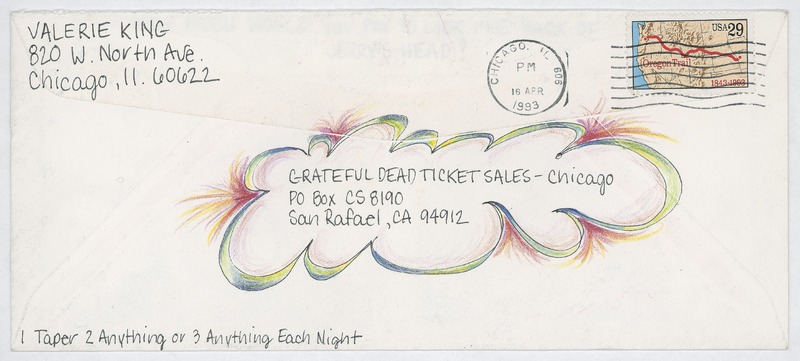 VALERIE KING
820 W. North Ave.
Chicago, Il. 60622
CHICAGO, IL 606
PM
16 APR
1993
USA 29
Oregon Trail
1843-1993
GRATEFUL DEAD TICKET SALES - Chicago
PO Box CS 8190
San Rafael, CA 94912
1 Taper 2 Anything or 3 Anything Each Night